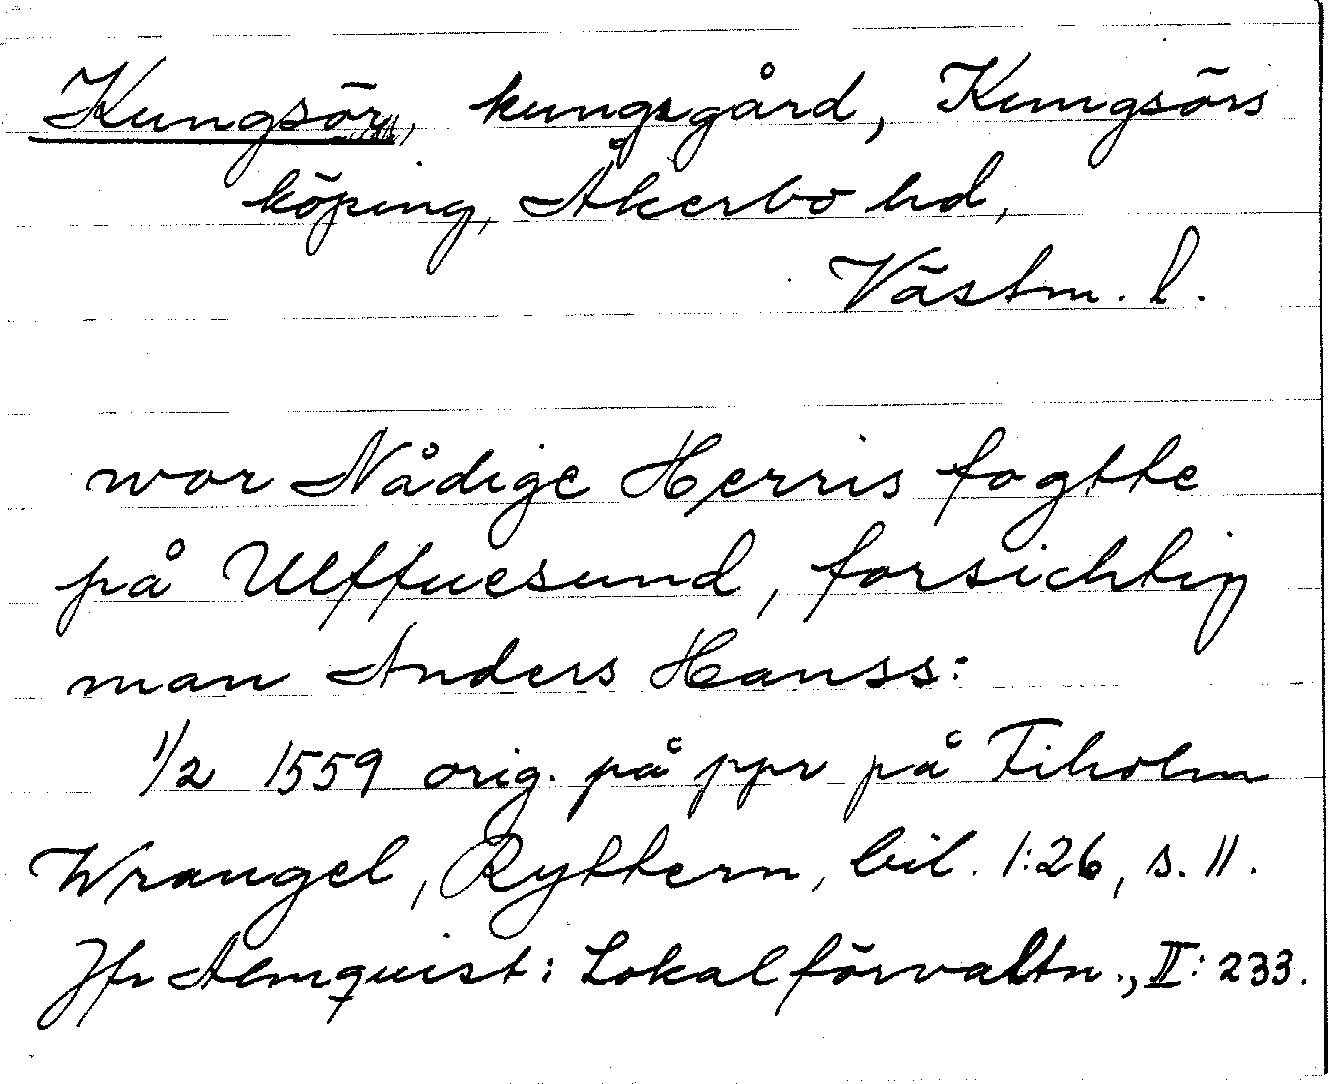 Kungsör, kungsgård, Kungsörs
köping, Åkerbo hd,
Västm. l.
wor Nådige Herris fogtte
på Ulffuesund, forsichtig
man Anders Hanss:
1/2 1559 orig. på ppr på Tiholm
Wrangel, Ryttern, bil. 1:26, s. 11.
Jfr Almquist: Lokalförvaltn., II: 233.